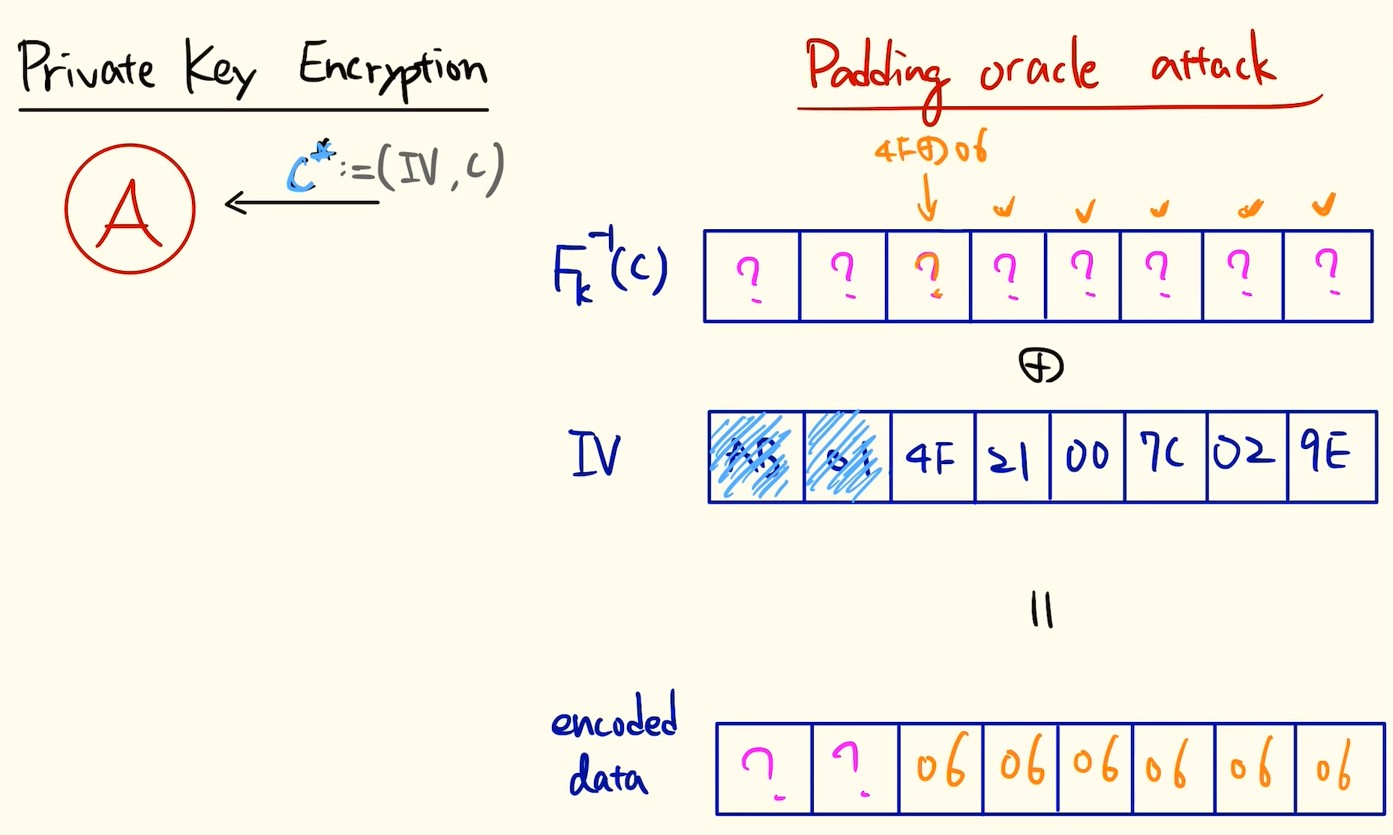 Private Key Encryption
Padding oracle attack
4F⊕06
C* := (IV, C)
A
F_k^{-1}(C) ? ? ? ? ? ? ? ?
⊕
IV 4F 21 00 7C 02 9E
=
encoded
data ? ? 06 06 06 06 06 06